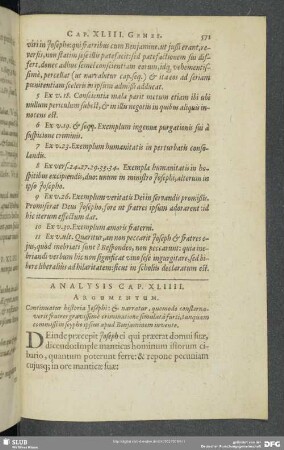 CAP. XLIII. GENES. 571
viri in Josepho: qui fratribus cum Benjamine, ut jussi erant, re-
versis, non statim sese illis patefacit: sed patefactionem sui dif-
fert, donec adhuc semel conscientiam eorum, idq; vehementis-
simè, percellat (ut narrabitur cap. seq.) & ita eos ad seriam
pœnitentiam sceleris in ipsum admissi adducat.
5 Ex v. 18. Conscientia mala parit metum etiam ibi ubi
nullum periculum subest, & in illis negotiis in quibus aliquis in-
nocens est.
6 Ex v. 19. & seqq. Exemplum ingenuæ purgationis sui à
suspicione criminis.
7 Ex v. 23. Exemplum humanitatis in perturbatis conso-
landis.
8 Ex vers. 24. 27. 29. 33. 34. Exempla humanitatis in ho-
spitibus excipiendis, duo: unum in ministro Josephi, alterum in
ipso Josepho.
9 Ex v. 26. Exemplum veritatis Dei in servandis promissis.
Promiserat Deus Josepho, fore ut fratres ipsum adorarent: id
hic iterum effectum dat.
10 Ex v. 30. Exemplum amoris fraterni.
11 Ex v. ult. Quæritur, an non peccarit Joseph & fratres e-
jus, quod inebriati sunt? Respondeo, non peccarunt: quia ine-
briandi verbum hic non significat vino sese ingurgitare, sed bi-
bere liberalius ad hilaritatem: sicut in scholiis declaratum est.
ANALYSIS CAP. XLIIII.
ARGUMENTUM.
Continuatur historia Josephi: & narratur, quomodo consterna-
verit fratres gravissimè criminatione simulatâ furti, tanquam
commissi in scypho ipsius apud Benjaminem invento.
DEinde præcepit Joseph ei qui præerat domui suæ,
dicendo: Imple manticas hominum istorum ci-
bario, quantum poterunt ferre: & repone pecuniam
cujusq; in ore manticæ suæ:
SLUB
Wir führen Wissen.
gefördert von der
Deutschen Forschungsgemeinschaft DFG